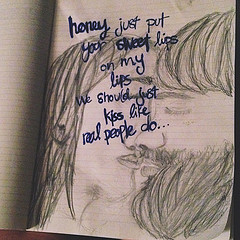 honey just put
your sweet lips
on my
lips
we should just
kiss like
real people do...